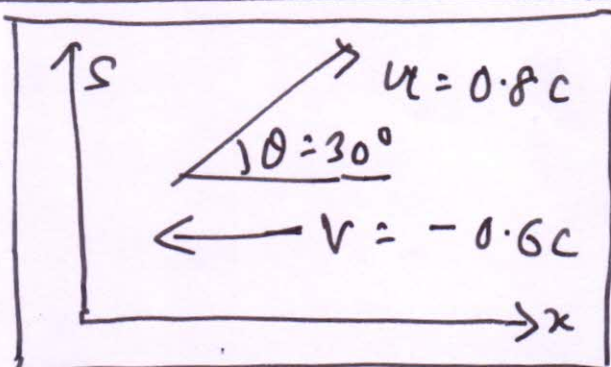 S
u = 0.8c
θ = 30°
v = -0.6c
x